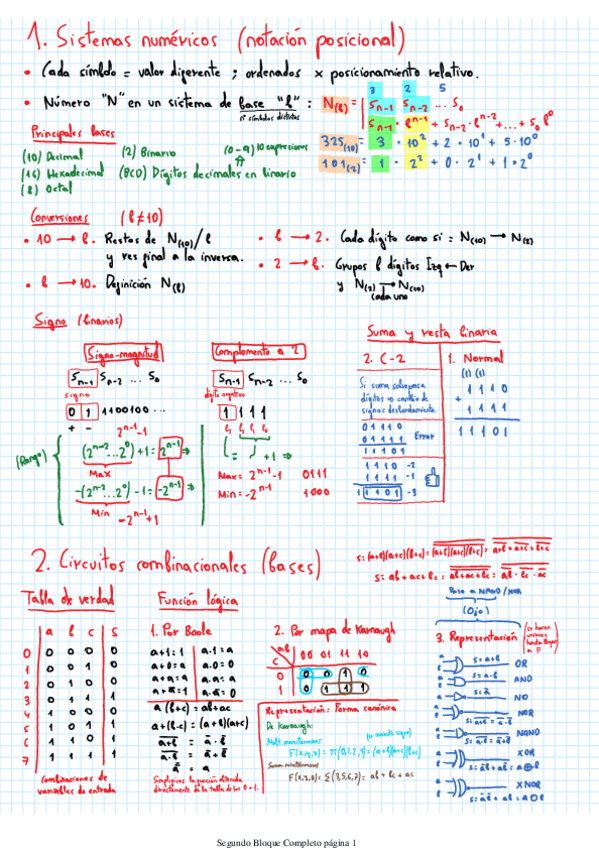 1. Sistemas numéricos (notación posicional)
• Cada símbolo = valor diferente ; ordenados x posicionamiento relativo.
• Número "N" en un sistema de base "b" :
si símbolos distintos
3 2 5
N(b) = | Sn-1 Sn-2 ... S0
Sn-1 · b^n-1 + Sn-2 · b^n-2 + ... + S0 b^0
325(10) = 3 · 10^2 + 2 · 10^1 + 5 · 10^0
101(2) = 1 · 2^2 + 0 · 2^1 + 1 · 2^0
Principales bases
(10) Decimal
(2) Binario
(0-9) 10 expresiones
(16) Hexadecimal
(BCD) Dígitos decimales en binario
(8) Octal
Conversiones (b≠10)
• 10 → b. Restos de N(10)/b
y res final a la inversa.
• b → 10. Definición N(b)
• b → 2. Cada dígito como si : N(10) → N(2)
• 2 → b. Grupos b dígitos Izq ← Der
y N(2) → N(10)
cada uno
Signo (binarios)
Signo-magnitud
Sn-1 Sn-2 ... S0
signo
0 1 1100100 ...
+ -
2^n-1-1
(Rango)
(2^n-2 ... 2^0) + 1 = 2^n-1 ⇒
Max
-(2^n-2 ... 2^0) - 1 = -2^n-1 ⇒
Min
-2^n-1+1
Complemento a 2
Sn-1 Sn-2 ... S0
dígito negativo
1 1 1 1
+1 ⇒
Max = 2^n-1 -1 0111
Min = -2^n-1 1000
Suma y resta binaria
2. C-2
Si suma sobrepasa
dígitos no cambio de
signo = desbordamiento
01110
01111 Error
11101
1110 -2
1111 -1
11101 -3
1. Normal
(1) (1)
1110
+
1111
11101
2. Circuitos combinacionales (bases)
s: (a+b)(a+c)(b+c) =
s: ab + ac + bc =
Paso a NAND / NOR
(Ojo)
Tabla de verdad
a b c s
0 0 0 0 0
1 0 0 1 0
2 0 1 0 0
3 0 1 1 1
4 1 0 0 0
5 1 0 1 1
6 1 1 0 1
7 1 1 1 1
Combinaciones de
variables de entrada
Función lógica
1. Por Boole
a+1=1 a·1=a
a+0=a a·0=0
a+a=a a·a=a
a+a̅=1 a·a̅=0
a(b+c) = ab+ac
a+(b·c) = (a+b)(a+c)
Simplifica la función obtenida
directamente de la tabla de los 0 o 1.
2. Por mapa de Karnaugh
ab 00 01 11 10
c
0 0 0 1 0
1 0 1 1 1
Representación : Forma canónica
De Karnaugh:
F(x,y,z) = π(0,1,2,4) = (a+b)(a+c)(b+c)
F(x,y,z) = Σ(3,5,6,7) = ab + bc + ac
3. Representación
s = a+b OR
AND
NO
NOR
NAND
XOR
XNOR
Segundo Bloque Completo página 1